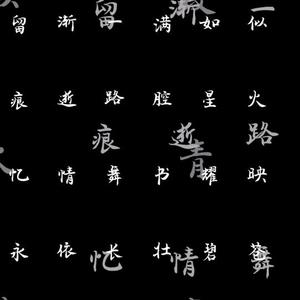 留 渐 满 如 似
痕 逝 路 腔 星 火
忆 情 舞 书 耀 映
永 依 长 壮 碧
留 渐 一
痕 逝 路
青
忆 情 舞